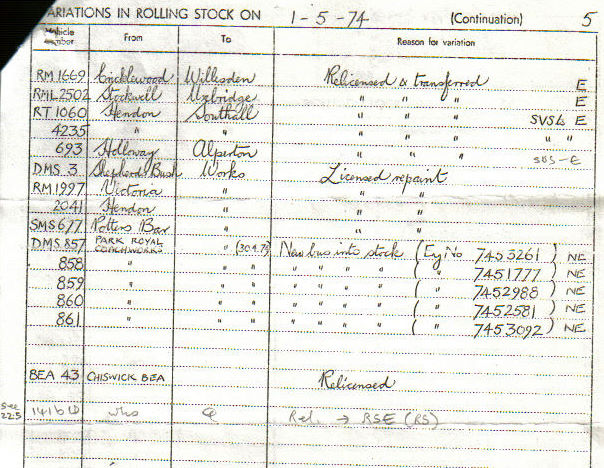 VARIATIONS IN ROLLING STOCK ON 1-5-74 (Continuation) 5
Vehicle Number From To Reason for variation
RM 1669 Cricklewood Willesden Relicensed & transferred E
RML 2502 Stockwell Uxbridge " " " E
RT 1060 Hendon Southall " " " SVSL E
4235 " " " " " " "
693 Holloway Alperton " " " SBS-E
DMS 3 Shepherd's Bush Works Licensed repaint
RM 1997 Victoria " " "
2041 Hendon " " "
SMS 677 Potters Bar " " "
DMS 857 PARK ROYAL COACHWORKS " (30.4.74) New bus into stock (Eng No 7453261) NE
858 " " " " " " " ( " 7451777) NE
859 " " " " " " " ( " 7452988) NE
860 " " " " " " " ( " 7452581) NE
861 " " " " " " " ( " 7453092) NE
BEA 43 CHISWICK BEA Relicensed
see 225 1416 Rel. → RSE (RS)